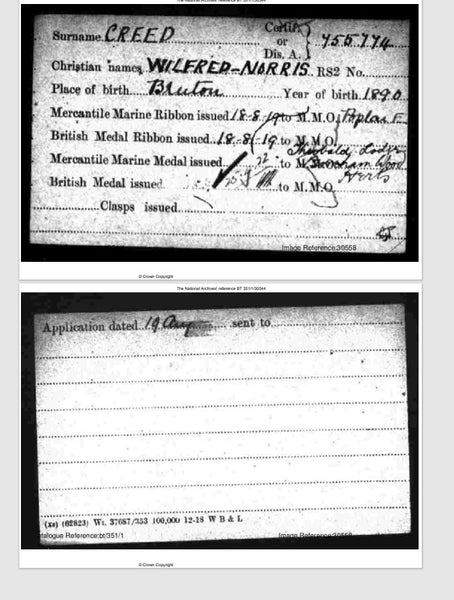 The National Archives' reference BT 351/1/30044
Surname CREED Certif. or Dis. A. 755774
Christian names WILFRED-NORRIS. RS2 No.
Place of birth Bruton Year of birth 1890
Mercantile Marine Ribbon issued 18-8-19 to M.M.O. Poplar E
British Medal Ribbon issued 18-8-19 to M.M.O.
Theobald Lodge
Mercantile Marine Medal issued to M.M.O.
Wood
Herts
British Medal issued to M.M.O.
Clasps issued
Image Reference:30558
© Crown Copyright
The National Archives' reference BT 351/1/30044
Application dated 19 Aug sent to
(xs) (62823) Wt. 37687/353 100,000 12-18 W B & L
talogue Reference:bt/351/1 Image Reference:30558
© Crown Copyright